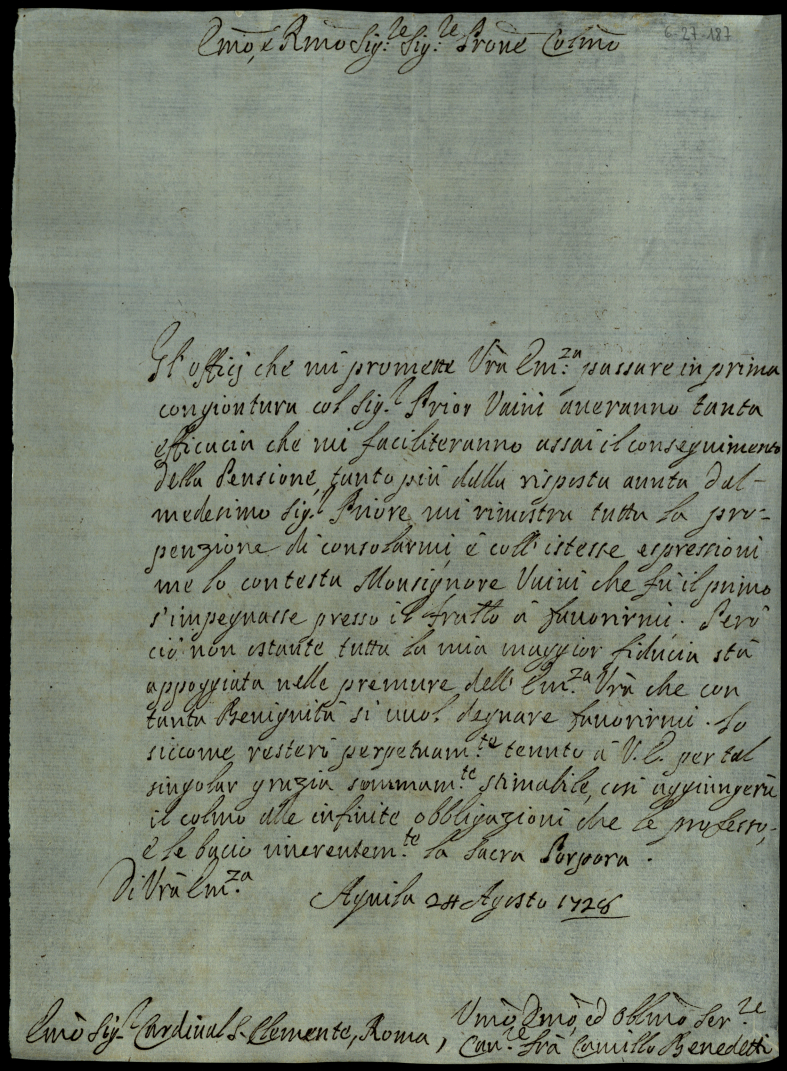 Emo, e Rmo Sig.re Sig.re Prone Colmo
6-27-187
Gl'officj che mi promette Vra Em.za passare in prima
congiontura col Sig.r Prior Vaini averanno tanta
efficacia che mi faciliteranno assai il conseguimento
della Pensione, tanto più dalla risposta auuta dal-
medesimo Sig.r Priore mi rimostra tutta la pro-
penzione di consolarmi, e coll'istesse espressioni
me lo contesta Monsignore Vaini che fù il primo
s'impegnasse presso il fratto à fauorirmi. Però
ciò non ostante tutta la mia maggior fiducia stà
appoggiata nelle premure dell'Em.za Vra che con
tanta Benignità si vuol degnare fauorirmi. Io
siccome resterò perpetuam.te tenuto à V.E. per tal
singolar grazia sommam.te stimabile, così aggiungerà
il colmo alle infinite obbligazioni che le professo,
e le bacio riuerentem.te la Sacra Porpora.
Di Vra Em.za
Aquila 24 Agosto 1728
Umo Dmo, ed Obbmo Ser.re
Emo Sig.r Cardinal S. Clemente, Roma, Cau.re Frà Camillo Benedetti